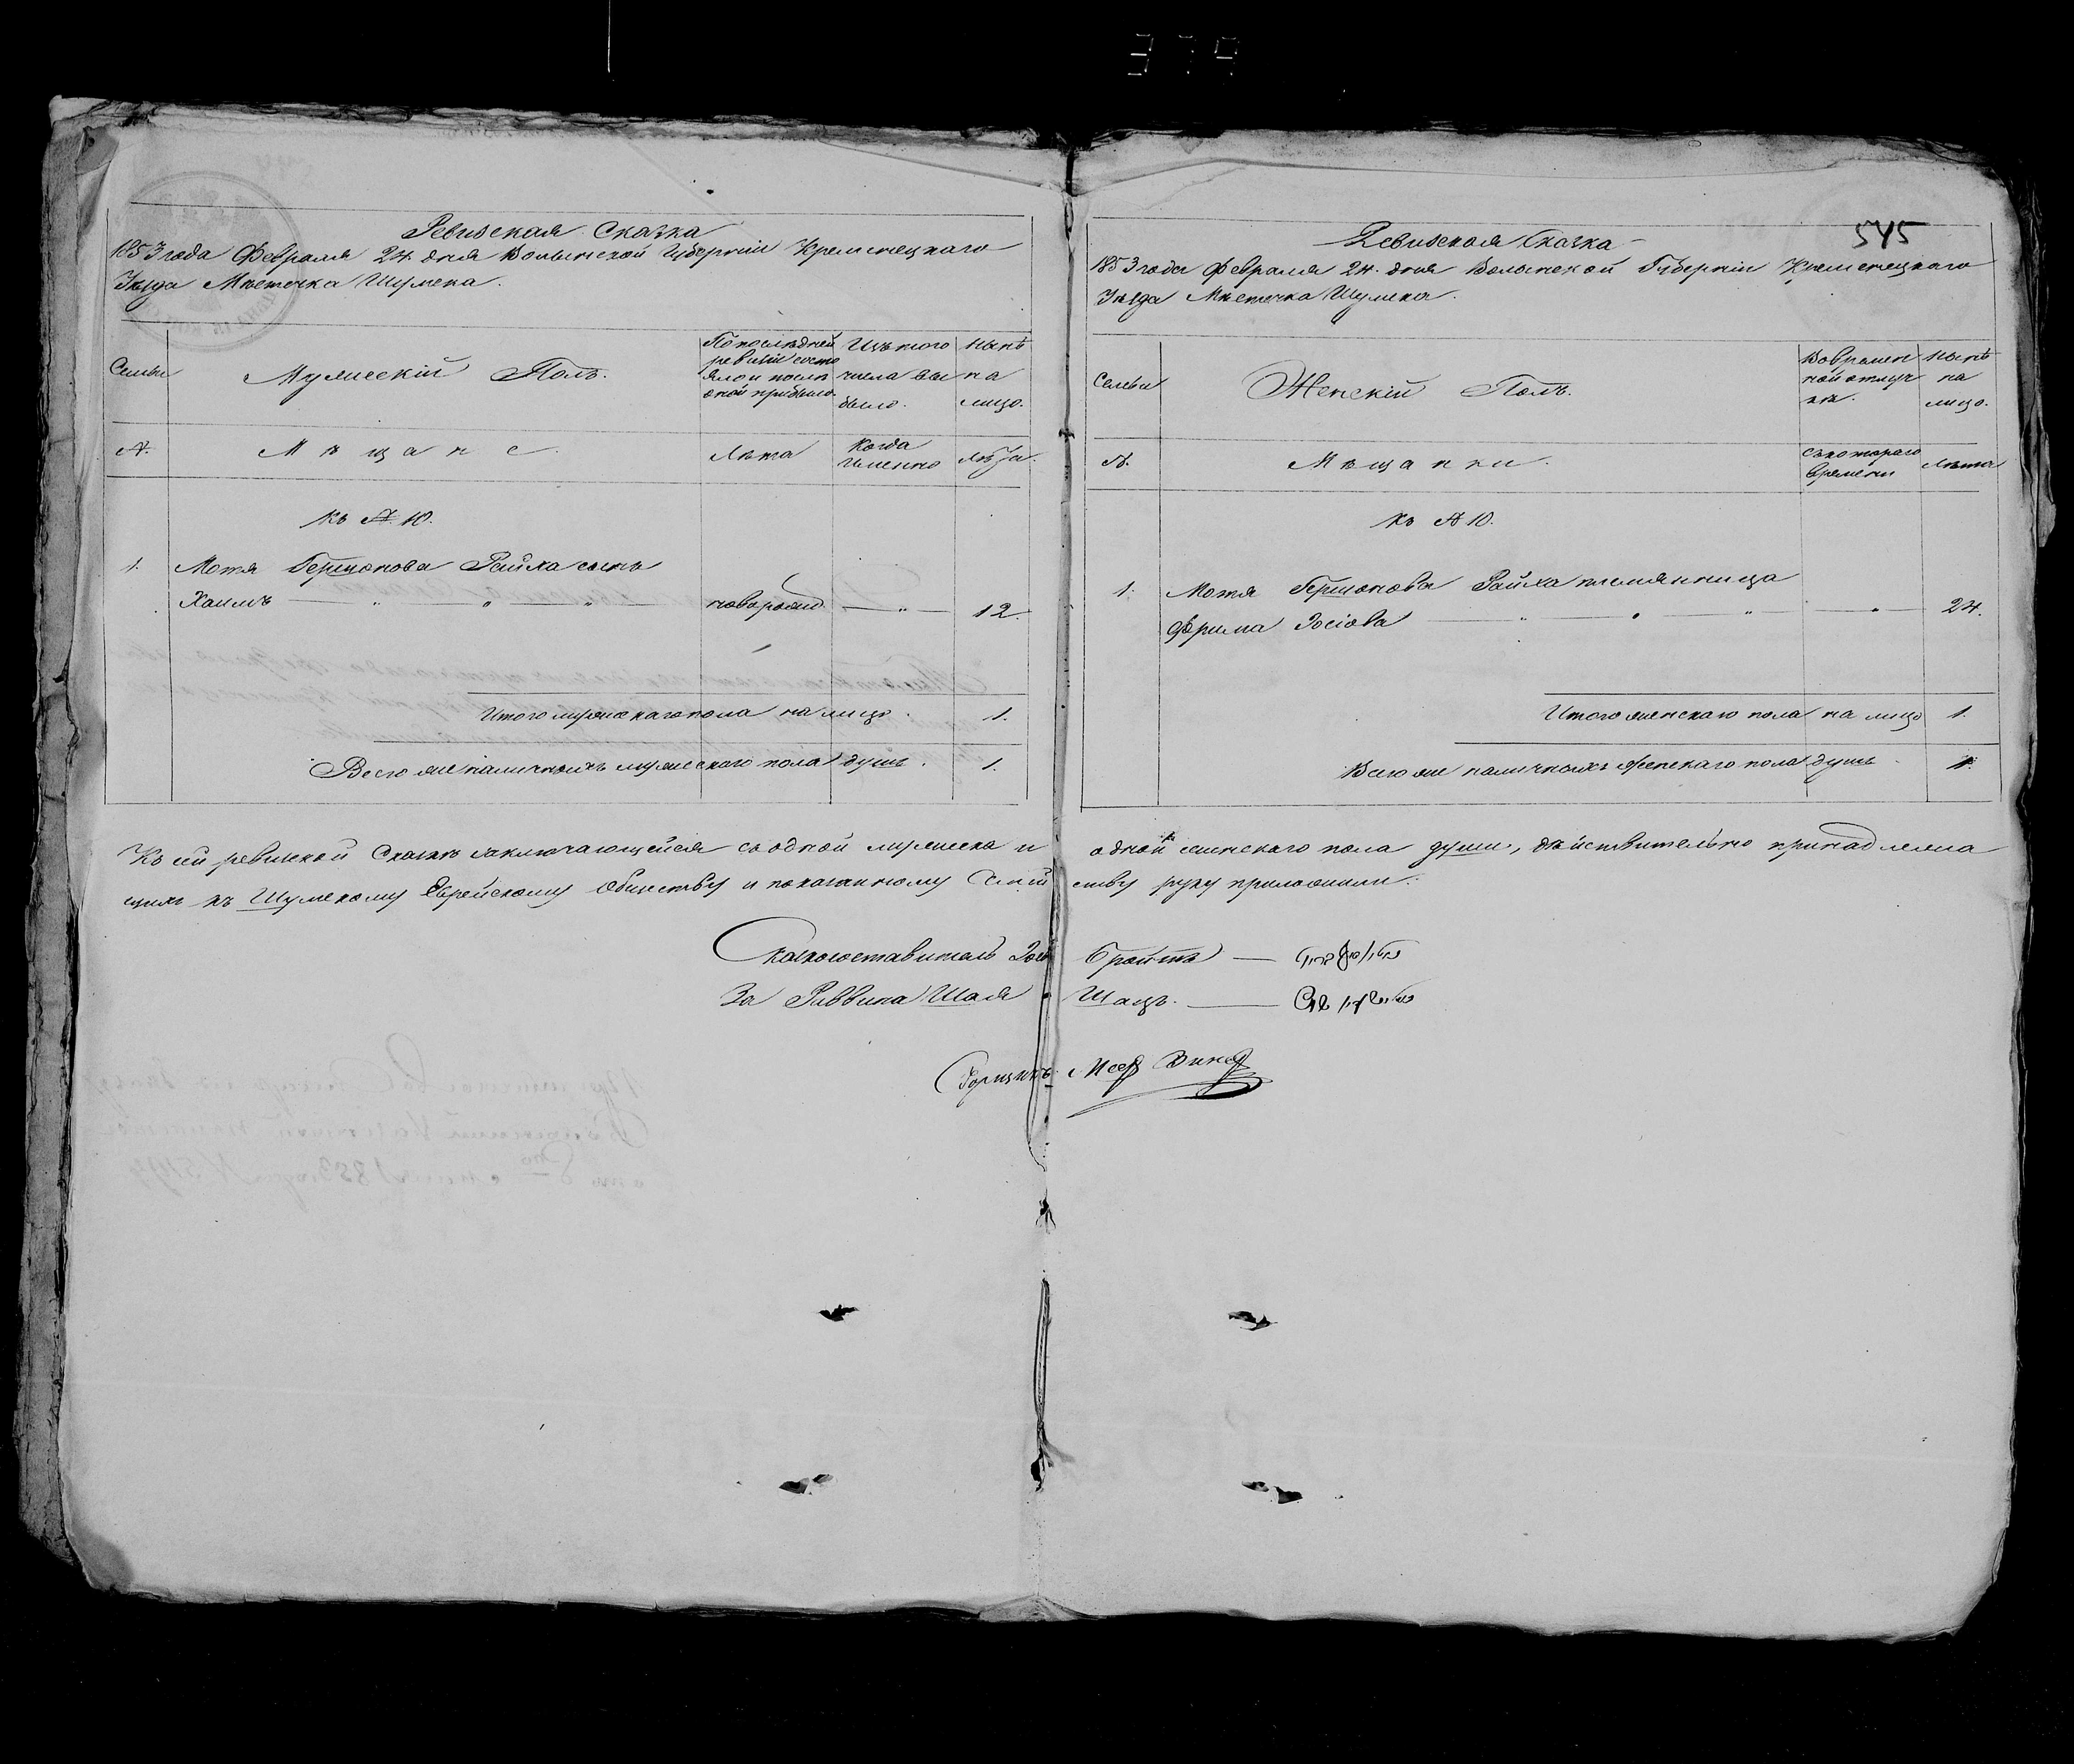 379
Ревизская Сказка
1853 года Февраля 24 дня Волынской Губернiи Кременецкаго
Уѣзда Мѣстечка Шумска.
Семьи
Мужескiй Полъ.
По послѣдней ревизiи состояло и послѣ оной прибыло
Изъ того числа выбыло.
Нынѣ на лицо.
№
Мѣщане.
Лѣта
Когда именно
Лѣта.
къ № 10.
1. Мотя Гершонова Райха сынъ
Хаимъ — " — " — " — новорожд — " — 12.
Итого мужескаго пола на лицо. 1.
Всего же наличныхъ мужескаго пола душъ. 1.
545
Ревизская Сказка
1853 года Февраля 24. дня Волынской Губернiи Кременецкаго
Уѣзда Мѣстечка Шумска.
Семьи
Женскiй Полъ.
Во временной отлучкѣ.
Нынѣ на лицо.
№.
Мѣщанки.
съ котораго времени
Лѣта
къ № 10.
1. Мотя Гершонова Райха племянница
Фрима Iосiова — " — " — " — " — 24.
Итого женскаго пола на лицо 1.
Всего же наличныхъ женскаго пола душъ 1.
Къ сей ревизской Сказкѣ заключающейся съ одной мужеска и одной женскаго пола души, дѣйствительно принадлежа
щихъ къ Шумскому Еврейскому Обществу и показанному Семейству руку приложили:
Сказкосоставитель Iось Бройтъ —
За Раввина Шая Шацъ. —